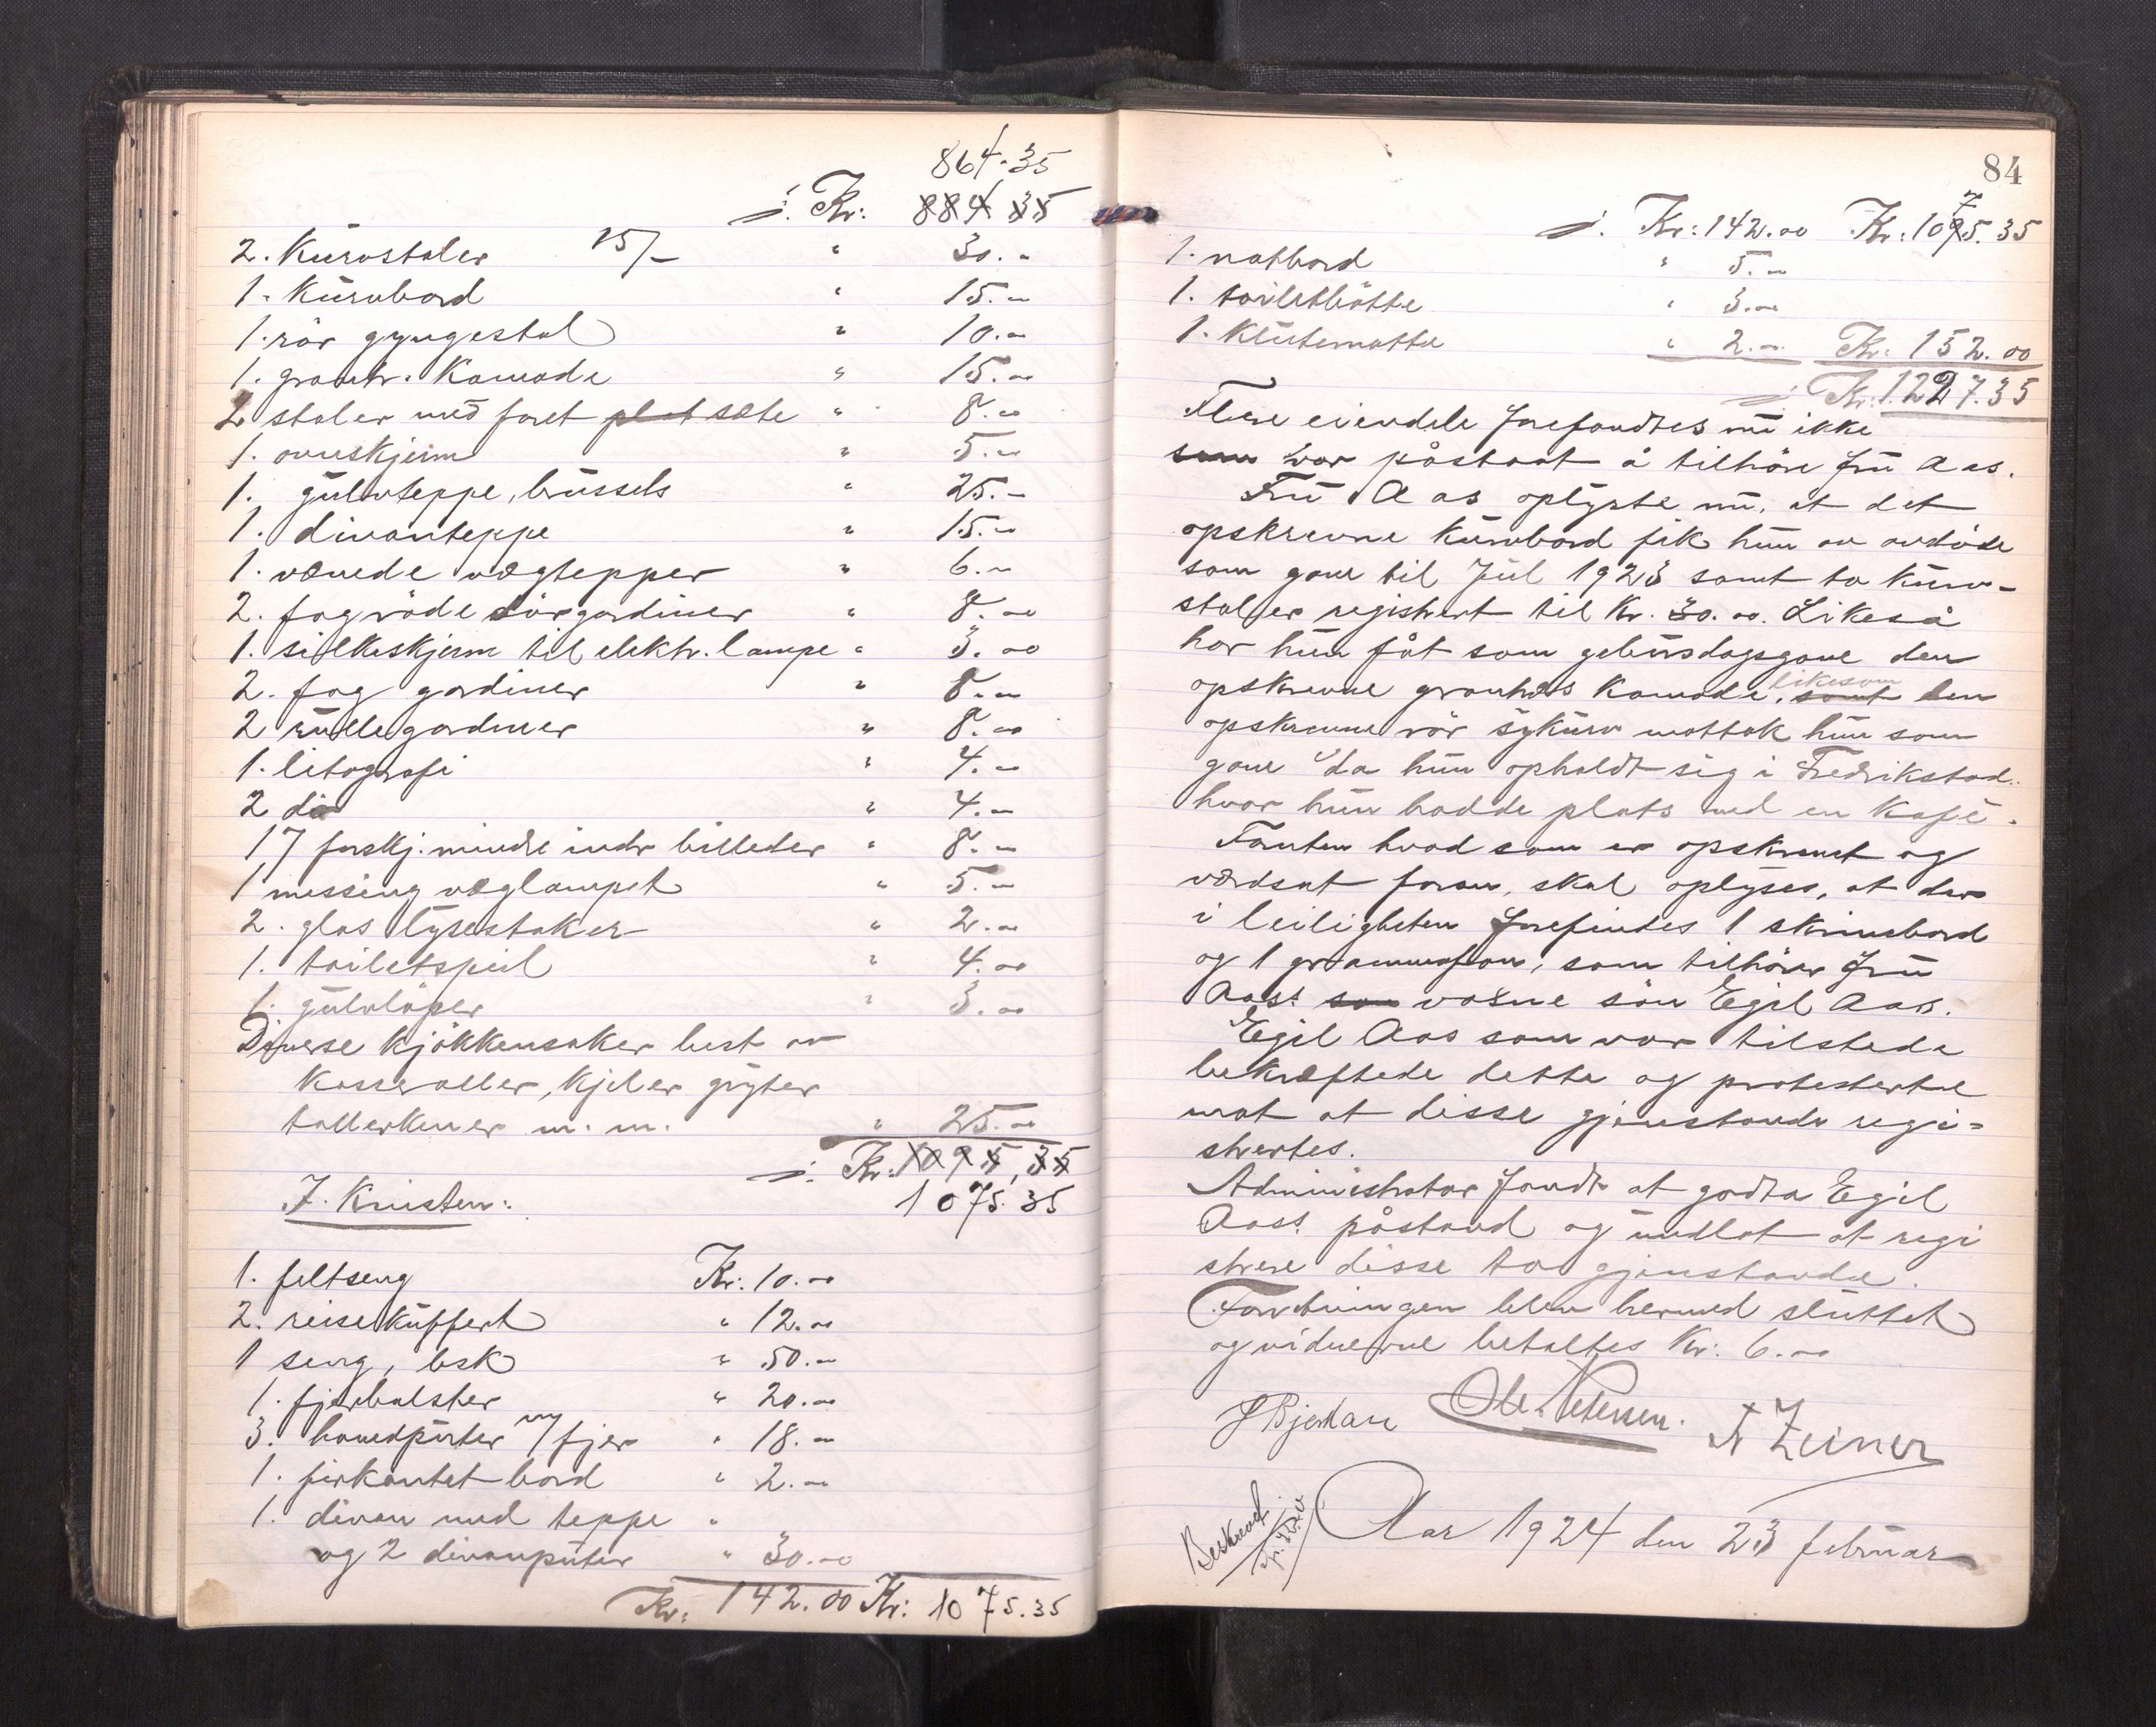 864.35
j. Kr: 884 35
2. Kurvstoler 15/- " 30.-
1. Kurvbord " 15.-
1. rör gyngestol " 10.-
1. grantr. Komode " 15.-
2 stoler med foret plat sæte " 8.00
1. ovnskjerm " 5.-
1. gulvteppe, brüssels " 25.-
1. divanteppe " 15.-
1. vævede vægtepper " 6.-
2. fag röde dörgardiner " 8.00
1. silkeskjerm til elektr. lampe " 3.00
2. fag gardiner " 8.-
2 rullegardiner " 8.00
1. litografi " 4.-
2 do " 4.-
17 forskj. mindre indr billeder " 8.-
1 messing væglampet " 5.-
2. glas lysestaker " 2.-
1. toiletspeil " 4.00
1. gulvlöper " 3.00
Diverse kjökkensaker best av
Kasseroller, Kjeler gryter
tallerkener m. m. " 25.-
j. Kr: 1095,35
1075.35
I. Kvisten:
1. feltseng Kr: 10.-
2. reisekuffert " 12.-
1 seng, bsk " 50.-
1. fjærbolster " 20.-
3. hovedputer m/ fjer " 18.-
1. firkantet bord " 2.-
1. divan med teppe "
og 2 divanputer " 30.00
Kr: 142.00 Kr: 1075.35
84
7
j. Kr: 142.00 Kr: 1095.35
1. natbord " 5.-
1. toiletbötte " 3.-
1. Klutematte " 2.- Kr: 152.00
j. Kr. 1227.35
Flere eiendele forefandtes nu ikke
som var påstaat å tilhöre fru Aas.
Fru Aas oplyste nu, at det
opskrevne Kurvbord fik hun av avdöde
som gave til Jul 1923 samt to Kurv-
stoler registrert til Kr. 30.00. Likeså
har hun fåt som gebursdagsgave den
opskrevne grantræs Komode, samt likesom den
opskrevne rör sykurv mottok hun som
gave da hun opholdt sig i Fredrikstad
hvor hun hadde plats ved en Kafé.
Foruten hvad som er opskrevet og
værdsat foran, skal oplyses, at der
i leiligheten forefindes 1 skrivebord
og 1 grammofon, som tilhörer fru
Aas' som voksne sön Egil Aas.
Egil Aas som var tilstede
bekræftede dette og protesterte
mot at disse gjenstande regi-
strertes.
Administrator fandt at godta Egil
Aas' påstand og undlot at regi
strere disse to gjenstande.
Forretningen blev hermed sluttet
og vidnerne betaltes Kr: 6.-
J Bjerkan Ole Petersen. A Zeiner
Beskrevet
Aar 1924 den 23 februar